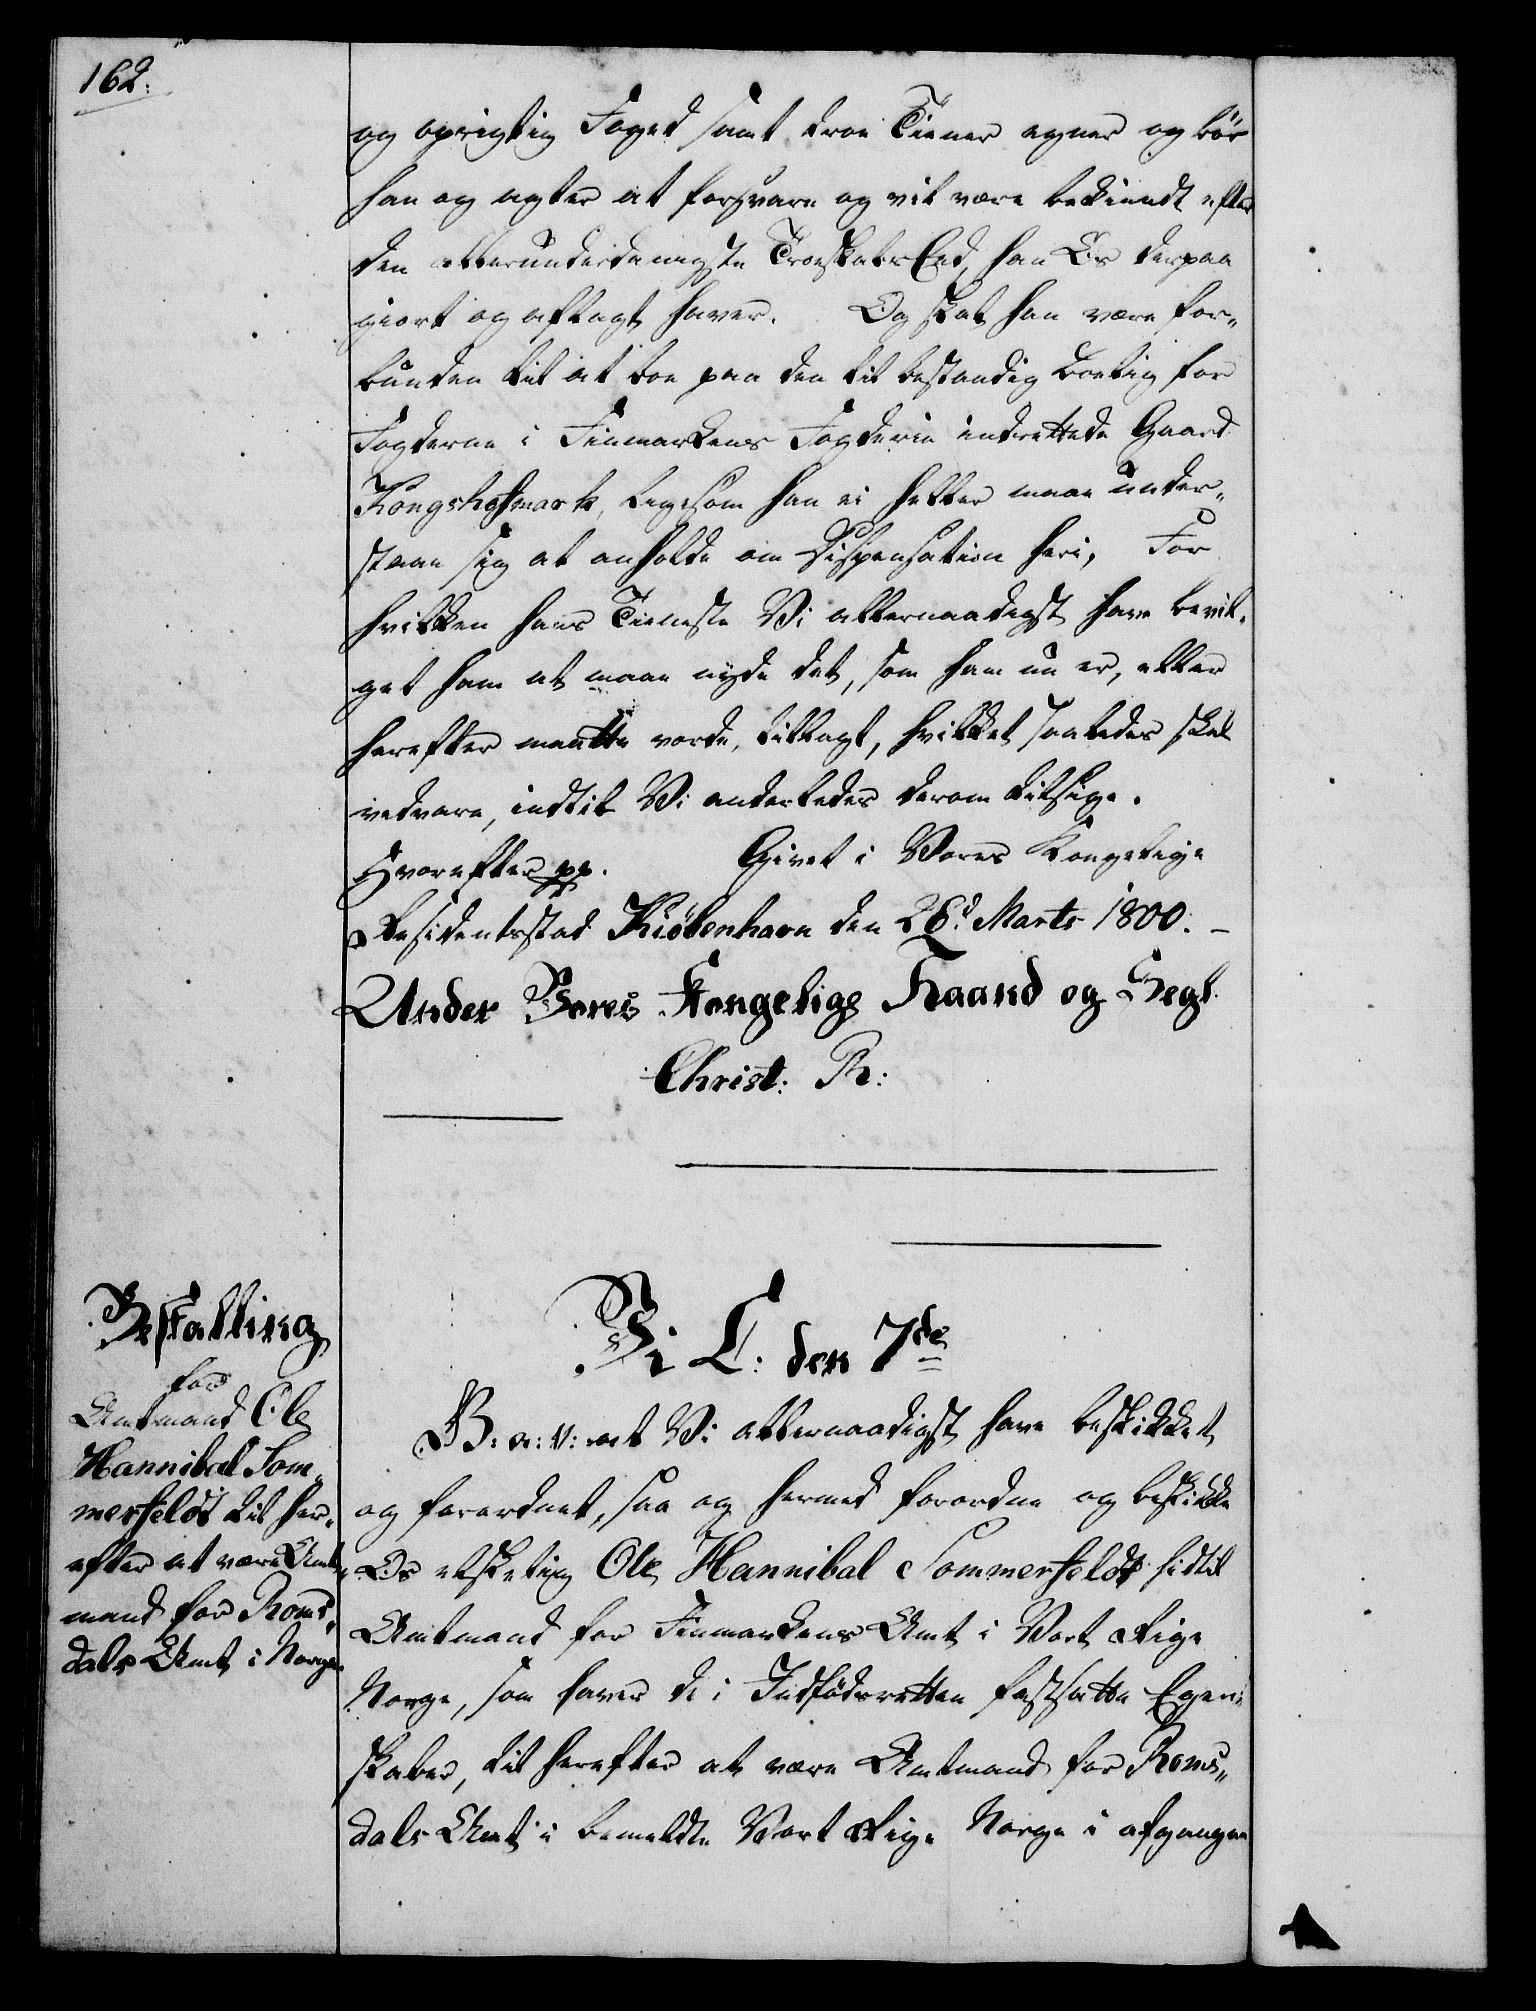 162.
og oprigtig Foged samt troe Tiener egner og bör
han og agter at forsvare og vil være bekiendt efter
den allerunderdanigste Troeskabs Eed, han Os derpaa
giort og aflagt haver. Og skal han være for„
bunden til at boe paa den til bestandig boelig for
Fogderne i Finmarkens Fogderie indrettede Gaard
Kongshofmark, ligesom han ei heller maae under„
staae sig at anholde om Dispensation heri, For
hvilken hans Tieneste Vi allernaadigst have bevil„
get ham at maae nyde det, som ham nu er, eller
herefter maatte vorde, tillagt, hvilket saaledes skal
vedvare, indtil Vi anderledes derom tilsige.
Hvorefter pp. Givet i Vores Kongelige
Residentsstad Kiöbenhavn den 26d Marts 1800. –
Under Vores Kongelige Haand og Segl.
Christ: R:
Bestalling
for
Amtmand Ole
Hannibal Som„
merfeldt til her„
efter at være Amt„
mand for Roms„
dals Amt i Norge.
Vi C: den 7de
G: A: V: at Vi allernaadigst have beskikket
og forordnet, saa og hermed forordne og beskikke
Os elskelig Ole Hannibal Sommerfeldt hidtil
Amtmand for Finmarkens Amt i Vort Rige
Norge, som haver de i Indfödsretten fastsatte Egen„
skaber, til herefter at være Amtmand for Roms„
dals Amt i bemeldte Vort Rige Norge i afgangne